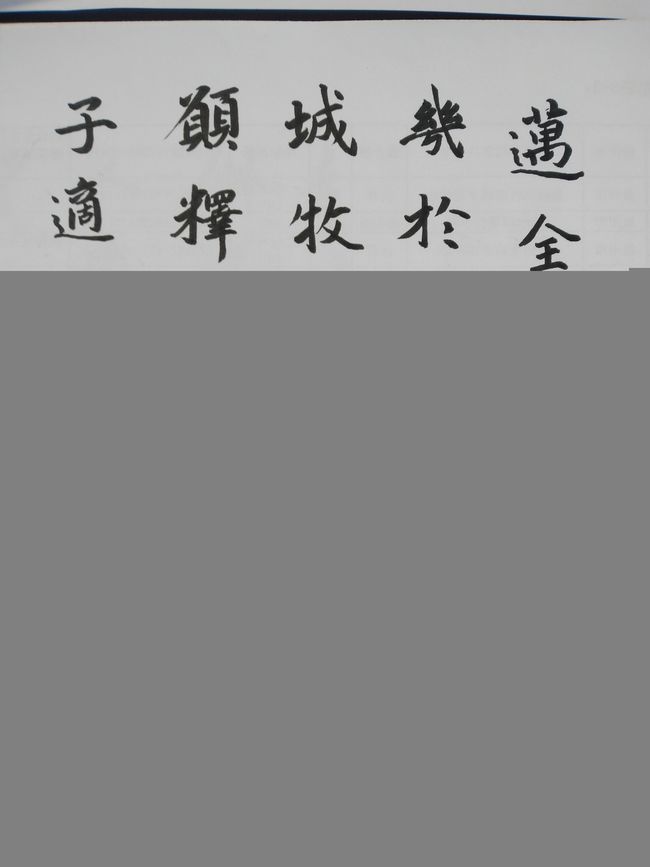 邁全
幾於
城牧
願釋
子適